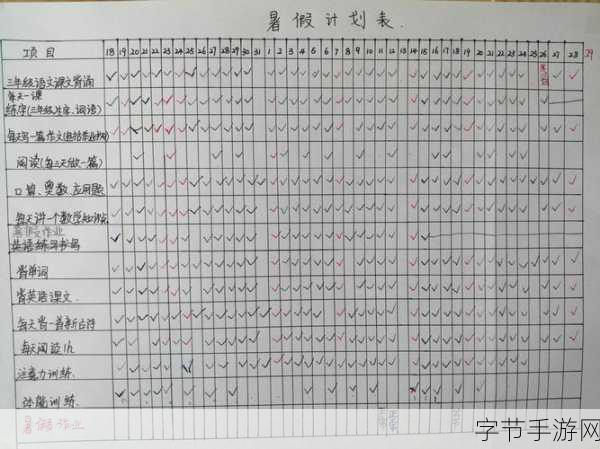 暑假计划表.
项目 18 19 20 21 22 23 24 25 26 27 28 29 30 31 1 2 3 4 5 6 7 8 9 10 11 12 13 14 15 16 17 18 19 20 21 22 23 24 25 26 27 28 29
三年级语文课文背诵
每天一课
练字(三年级生字、词语)
每天写一篇作文
阅读(每三天做一篇)
口算、奥数、应用题
每天讲一个数学知识点
暑假作业
英语练习书写
背单词
背英语课文.
每天背一首新古诗
每天阅读1h
注意力训练.
体能训练.
暑假作业
字节手游网